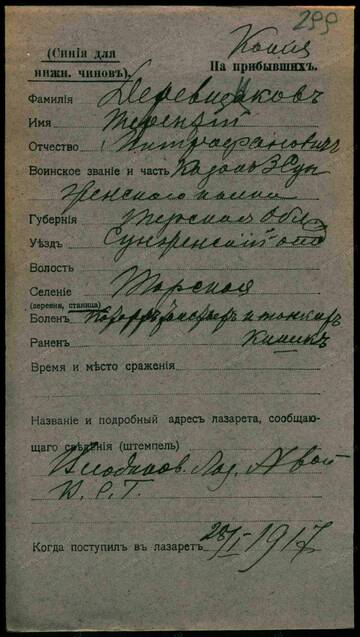 299
Копия
(Синія для
нижн. чиновъ).
На прибывшихъ.
Фамилія
Имя Терентій
Отчество Митрофановичъ
Воинское званіе и часть Казакъ 3 Сун
женского полка
Губернія Терская обл
Уѣздъ Сунженскій отд
Волость
Селеніе Терская
(деревня, станица)
Боленъ
Раненъ
Время и мѣсто сраженія
Названіе и подробный адресъ лазарета, сообщаю-
щаго свѣдѣнія (штемпель)
К. Р. Т.
Когда поступилъ въ лазаретъ 28/I 1917